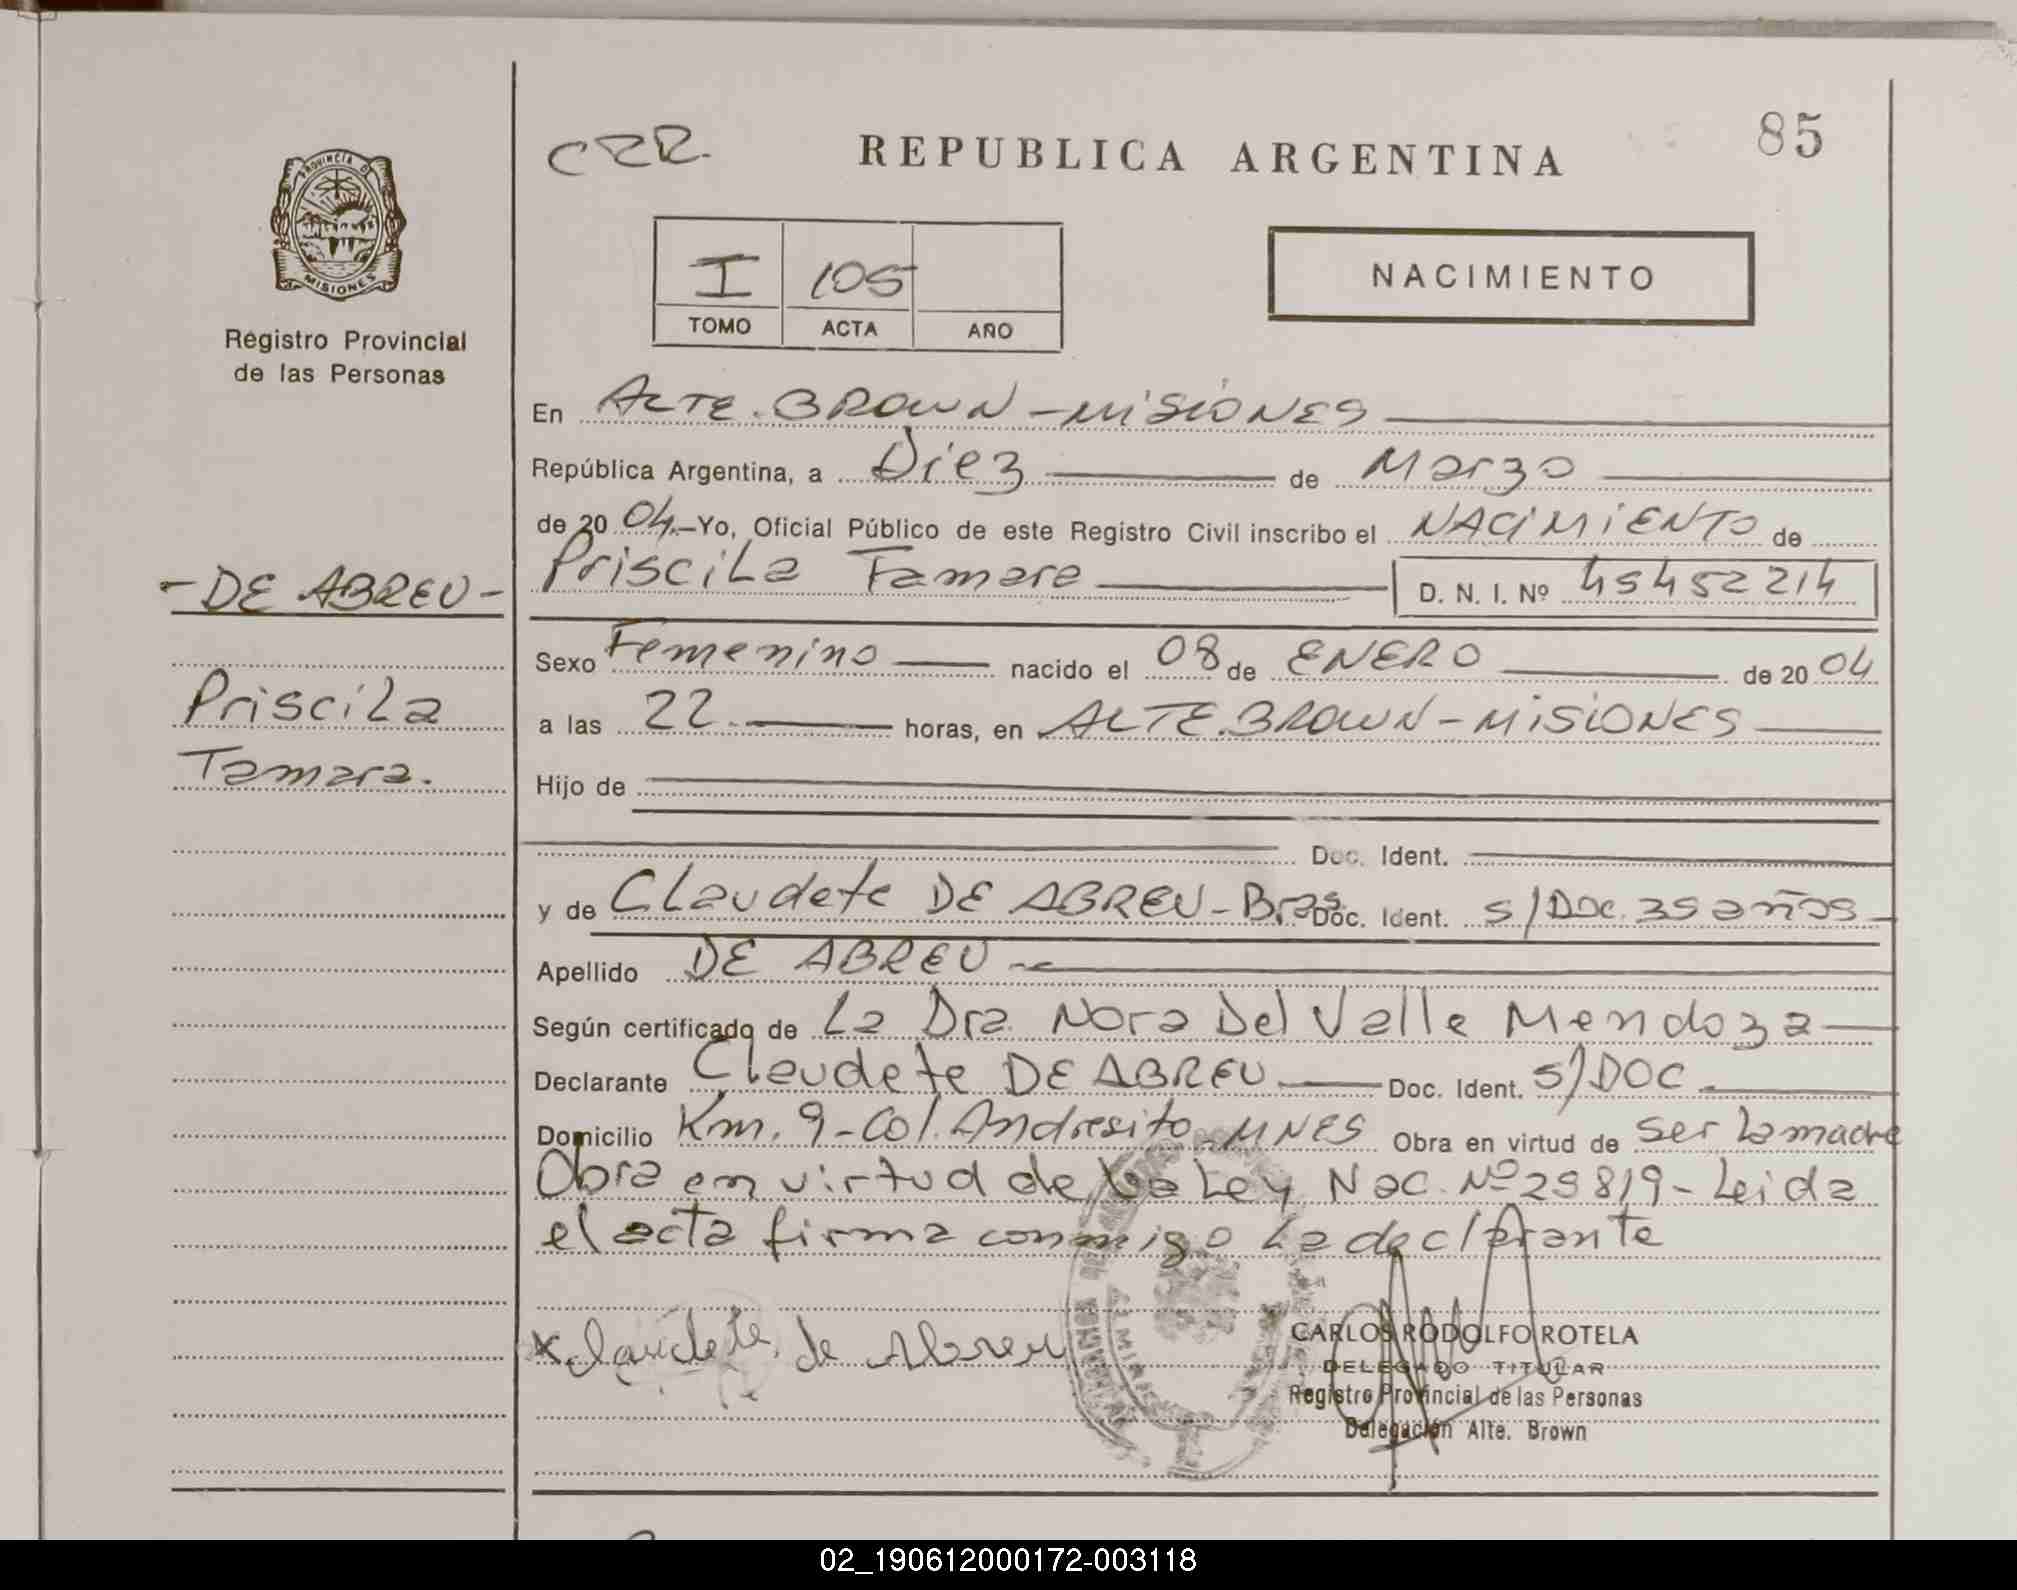 CRR.
REPUBLICA ARGENTINA
85
PROVINCIA D
MISIONES
Registro Provincial
de las Personas
I 105
TOMO ACTA AÑO
NACIMIENTO
En ALTE. BROWN - MISIONES
República Argentina, a Diez de Marzo
de 20 04.- Yo, Oficial Público de este Registro Civil inscribo el NACIMIENTO de
- DE ABREU -
Priscila Tamara D. N. I. Nº 45452214
Sexo Femenino nacido el 08 de ENERO de 20 04
Priscila
a las 22. horas, en ALTE. BROWN - MISIONES
Tamara.
Hijo de
Doc. Ident.
y de Claudete DE ABREU - Bras. Doc. Ident. S/DOC. 35 años
Apellido DE ABREU
Según certificado de La Dra. Nora Del Valle Mendoza
Declarante Claudete DE ABREU Doc. Ident. S/DOC.
Domicilio Km. 9 - Col. Andresito - MNES Obra en virtud de ser la madre
Obra en virtud de la Ley Nac. Nº 25819 - Leida
el acta firma conmigo la declarante
x Claudete de Abreu
CARLOS RODOLFO ROTELA
DELEGADO TITULAR
Registro Provincial de las Personas
Delegación Alte. Brown
02_190612000172-003118